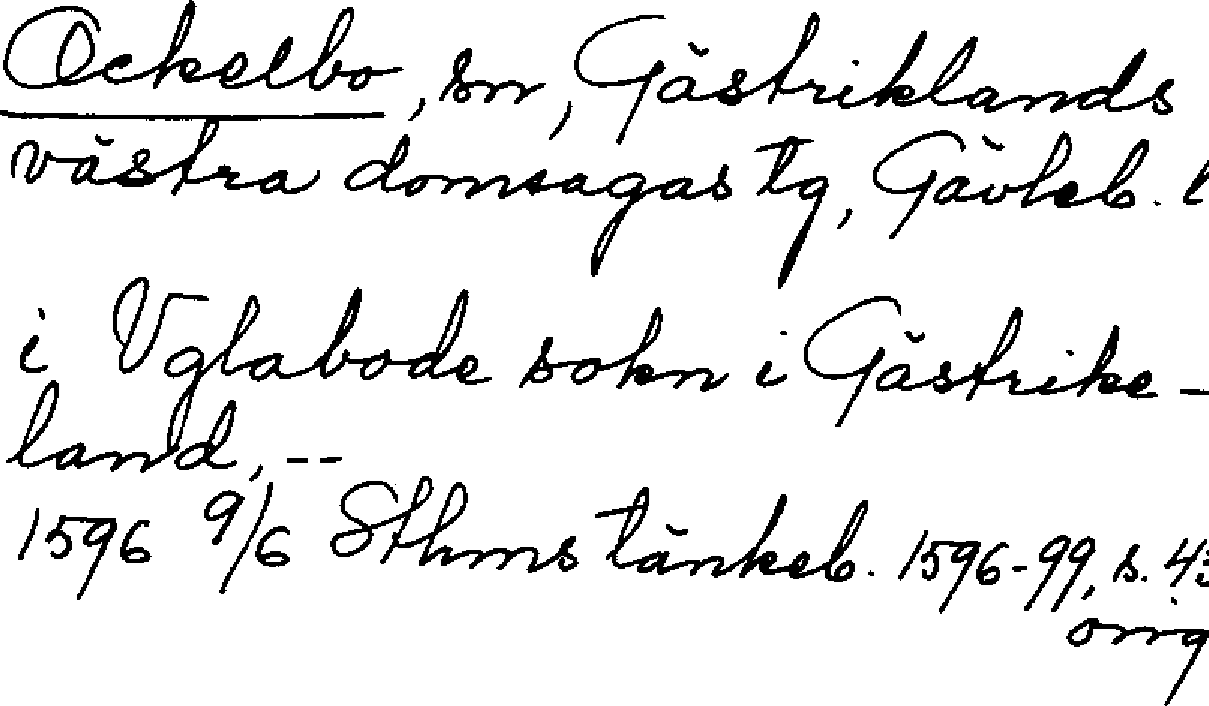 Ockelbo, sn, Gästriklands
västra domsagas tg, Gävleb. l
i Vglabode sokn i Gästrike-
land, --
1596 9/6 Sthms tänkeb. 1596-99, s. 43
orig